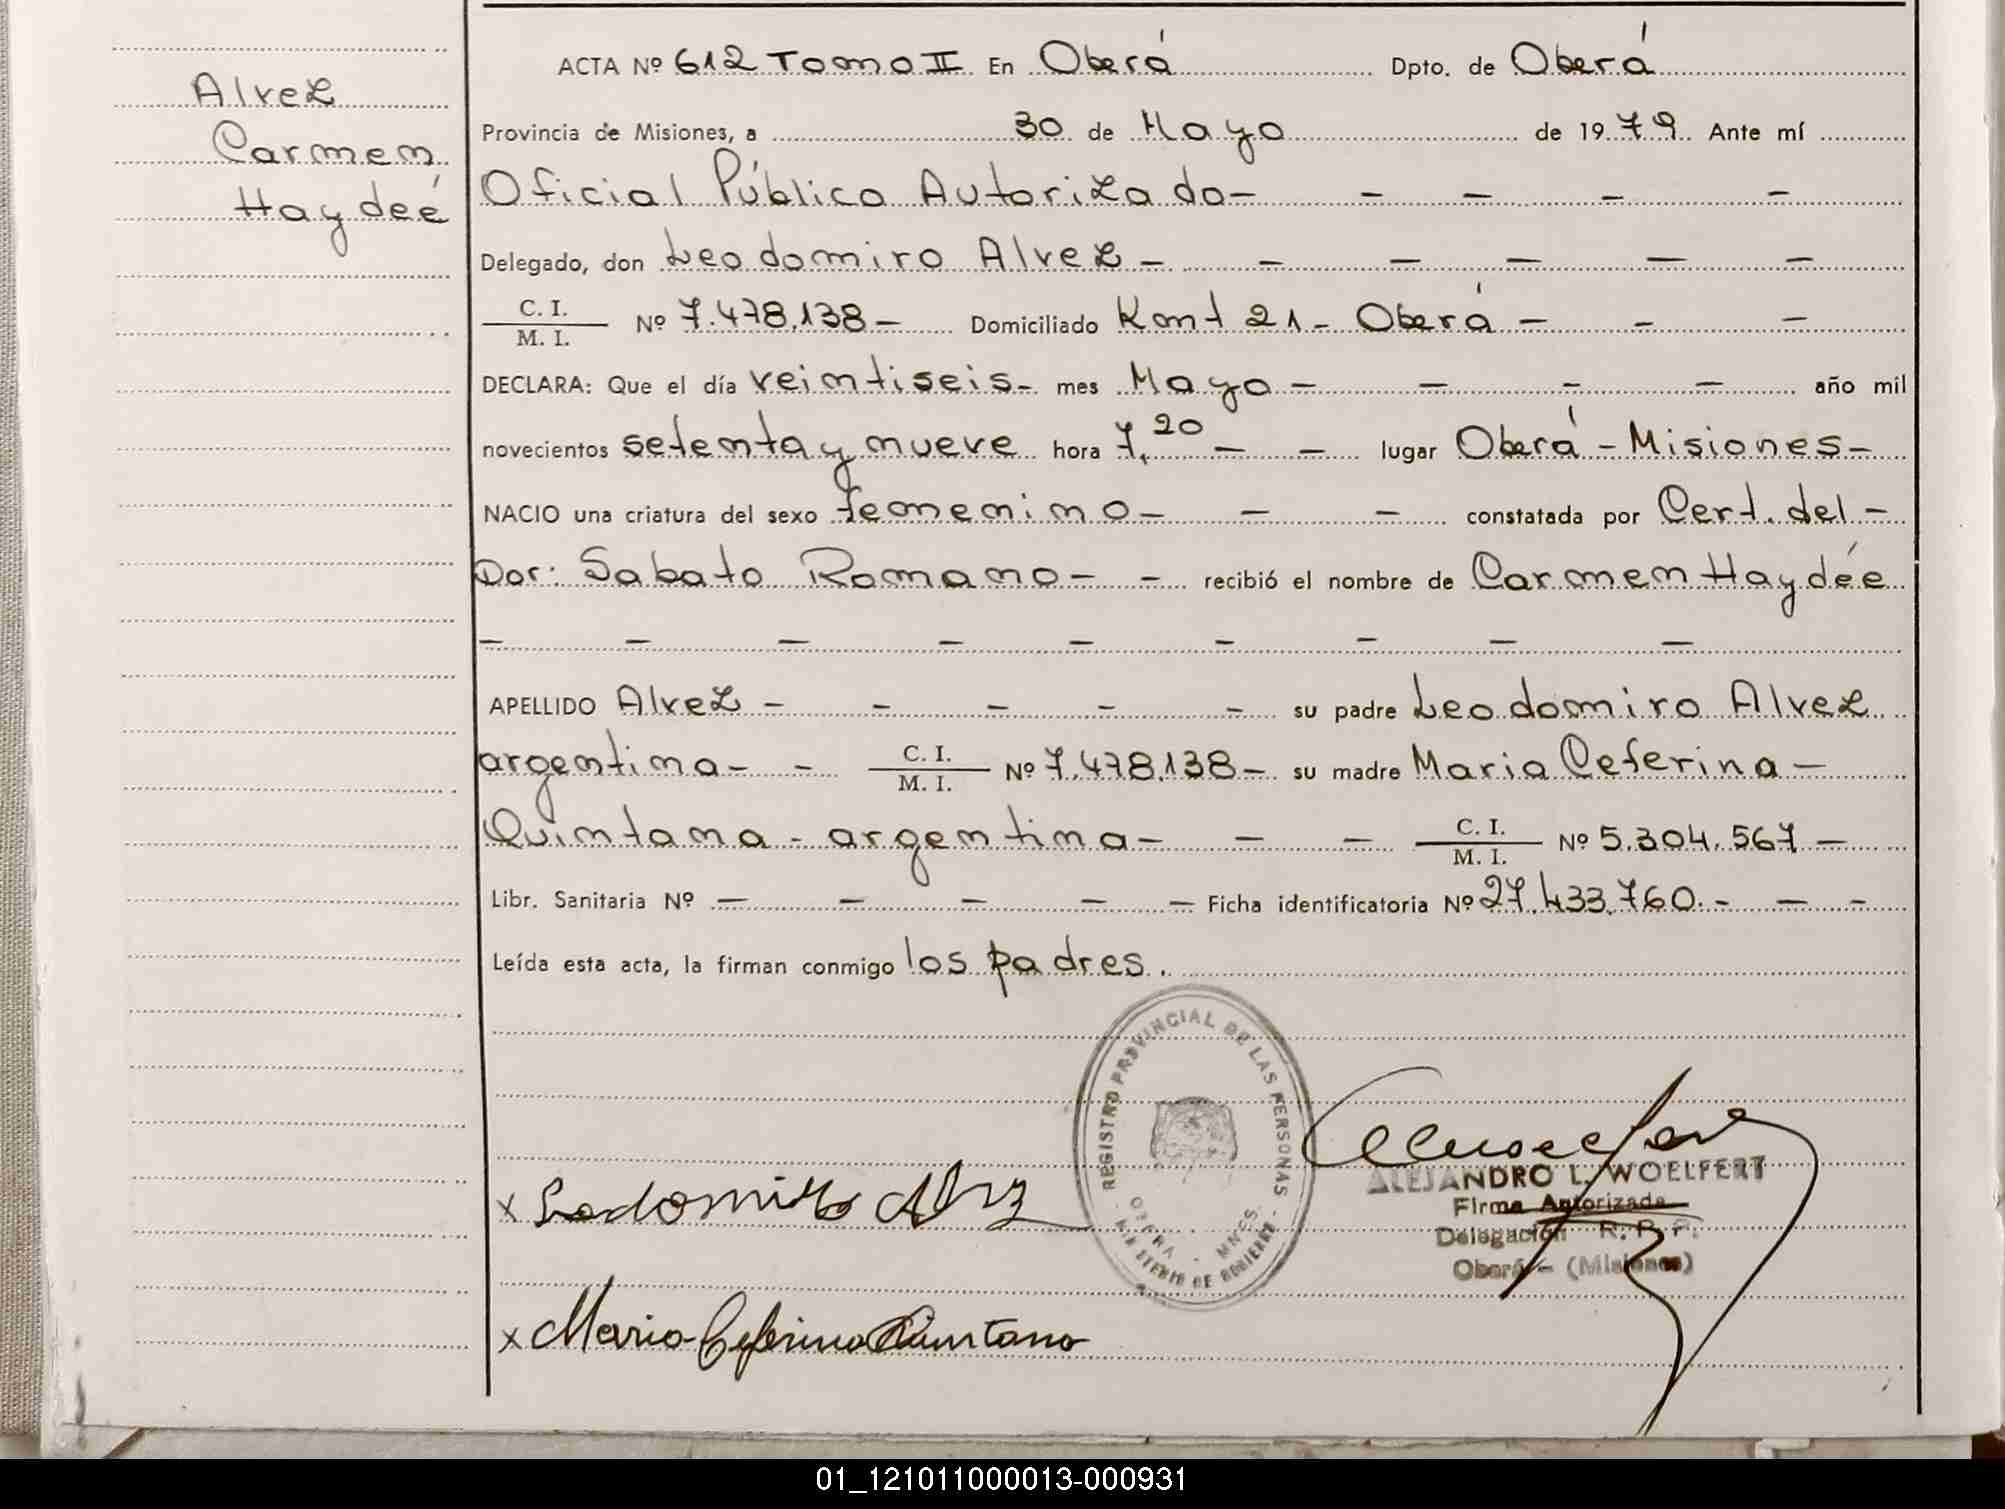 Alvez
Carmen
Haydeé
ACTA Nº 612 Tomo II En Oberá Dpto. de Oberá
Provincia de Misiones, a 30 de Mayo de 1979 Ante mí
Oficial Público Autorizado - - - - -
Delegado, don Leodomiro Alvez - - - - - -
C. I.
M. I. Nº 7.478.138 - Domiciliado Kmt 21 - Oberá - - -
DECLARA: Que el día veintiseis - mes Mayo - - - - año mil
novecientos setenta y nueve hora 7,20 - - lugar Oberá - Misiones -
NACIO una criatura del sexo femenino - - - constatada por Cert. del -
Dor: Sabato Romano - - recibió el nombre de Carmen Haydée
- - - - - - - - -
APELLIDO Alvez - - - - - su padre Leodomiro Alvez
argentina - - C. I.
M. I. Nº 7.478.138 - su madre Maria Ceferina -
Quintana - argentina - - - C. I.
M. I. Nº 5.304.567 -
Libr. Sanitaria Nº - - - - - Ficha identificatoria Nº 27.433.760. - - -
Leída esta acta, la firman conmigo los padres.
REGISTRO PROVINCIAL DE LAS PERSONAS
OBERA - MNES.
MINISTERIO DE GOBIERNO
ALEJANDRO L. WOELFERT
Firma Autorizada
Delegación R. P. P.
Oberá - (Misiones)
x Leodomiro Alvez
x Maria Ceferina Quintana
01_121011000013-000931